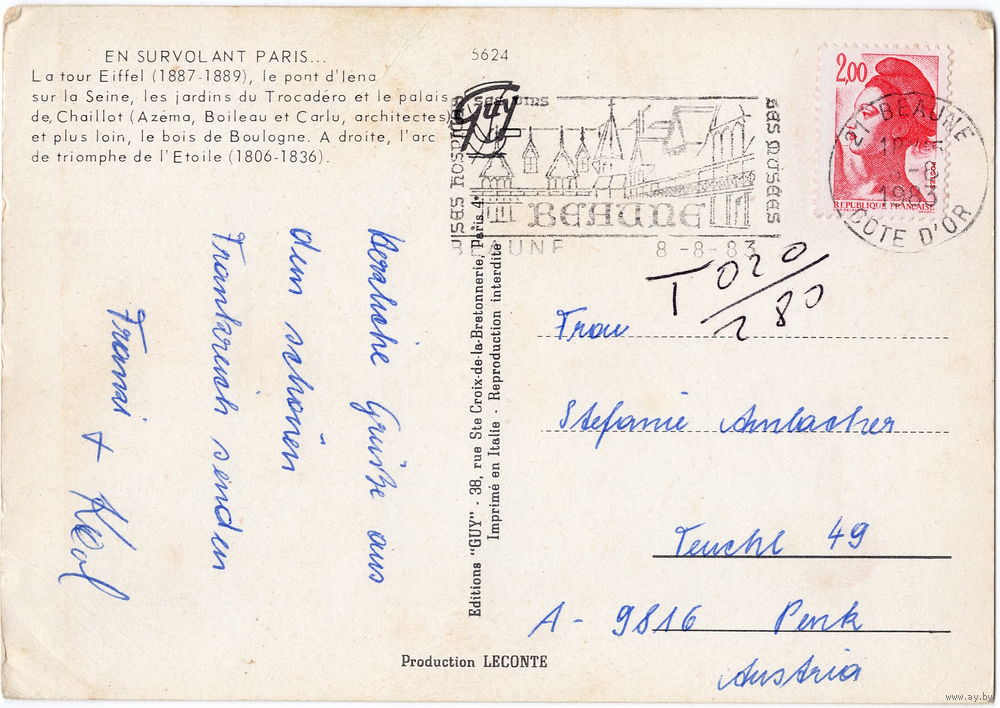 EN SURVOLANT PARIS...
La tour Eiffel (1887-1889), le pont d'Iéna
sur la Seine, les jardins du Trocadéro et le palais
de Chaillot (Azéma, Boileau et Carlu, architectes)
et plus loin, le bois de Boulogne. A droite, l'arc
de triomphe de l'Etoile (1806-1836).
5624
Guy
ses vins
ses Hospices
ses musées
BEAUNE
BEAUNE 8-8-83
2,00
RÉPUBLIQUE FRANÇAISE
POSTES
21 BEAUNE
1983
COTE D'OR
T 020/280
Herzliche Grüße aus
dem schönen
Frankreich senden
Franzi + Karl
Editions "GUY" · 38, rue Ste Croix-de-la-Bretonnerie, Paris 4e
Imprimé en Italie · Reproduction interdite
Frau
Stefanie Ambacher
Teuchl 49
A-9816 Penk
Austria
Production LECONTE
www.ay.by